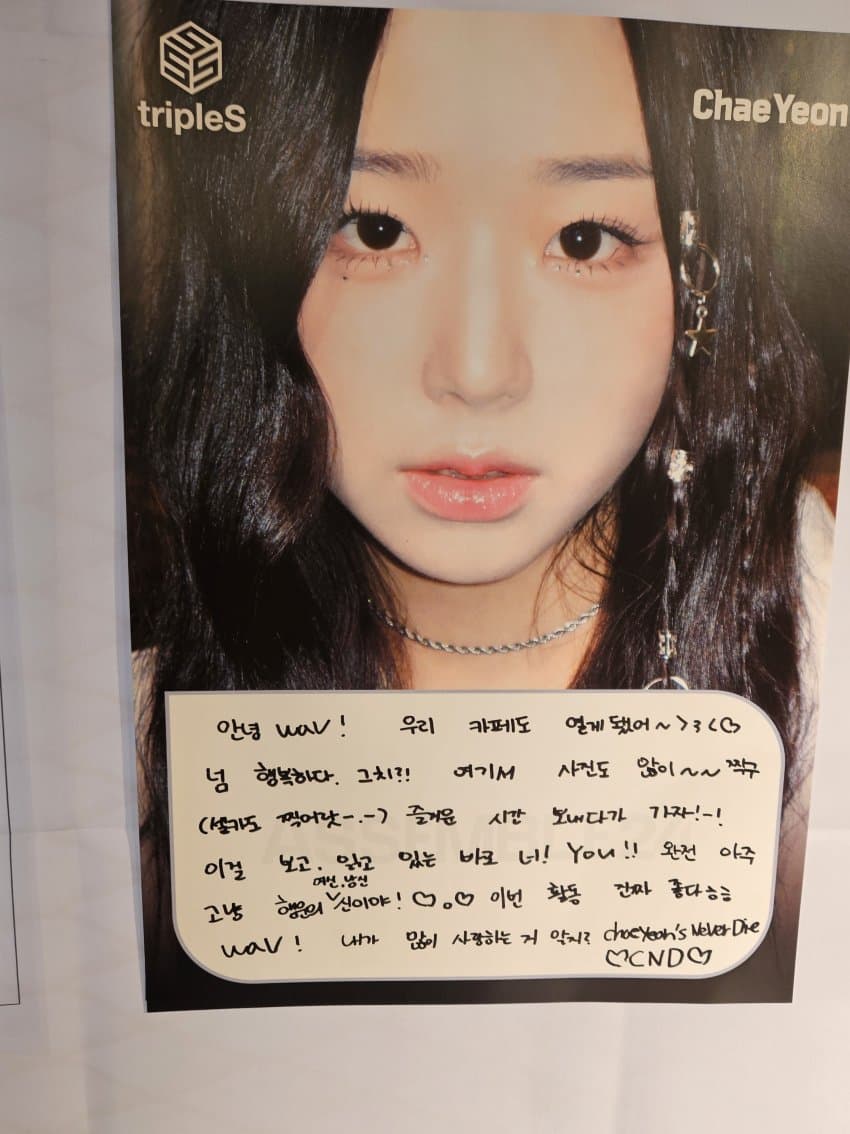 tripleS
ChaeYeon
안녕 wav! 우리 카페도 열게 됐어~ >3<♡
넘 행복하다. 그치?! 여기서 사진도 많이~~ 찍구
(셀카도 찍어랏-.-) 즐거운 시간 보내다가 가자!-!
이걸 보고, 읽고 있는 바로 너! You!! 완전 아주
여신.남신
그냥 행운의 ∨신이야! ♡。♡ 이번 활동 진짜 좋다 ㅎㅎ
wav! 내가 많이 사랑하는 거 알지? chaeYeon's Never Die
♡CND♡